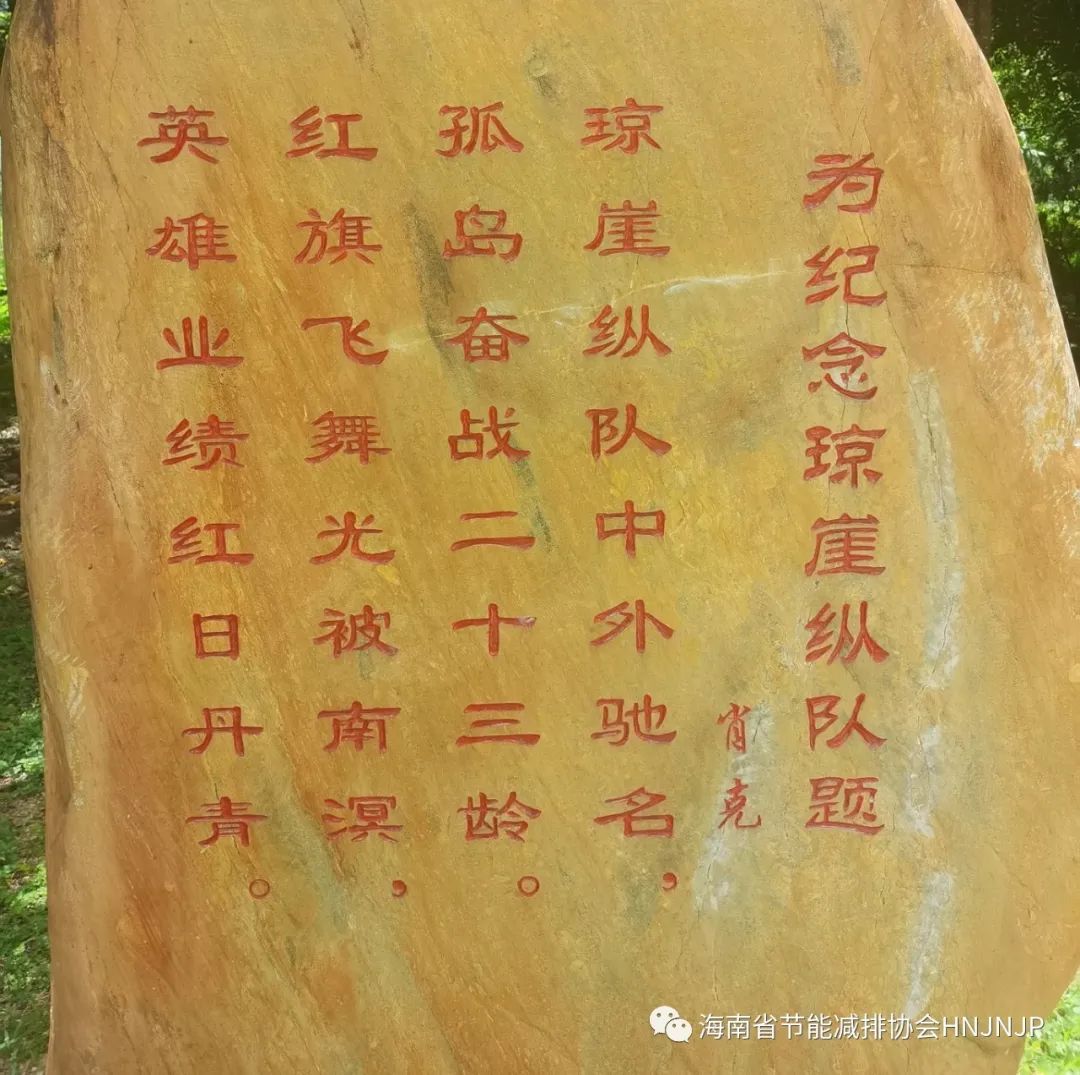 为纪念琼崖纵队题
肖克
琼崖纵队中外驰名，
孤岛奋战二十三龄。
红旗飞舞光被南溟，
英雄业绩红日丹青。
海南省节能减排协会HNJNJP